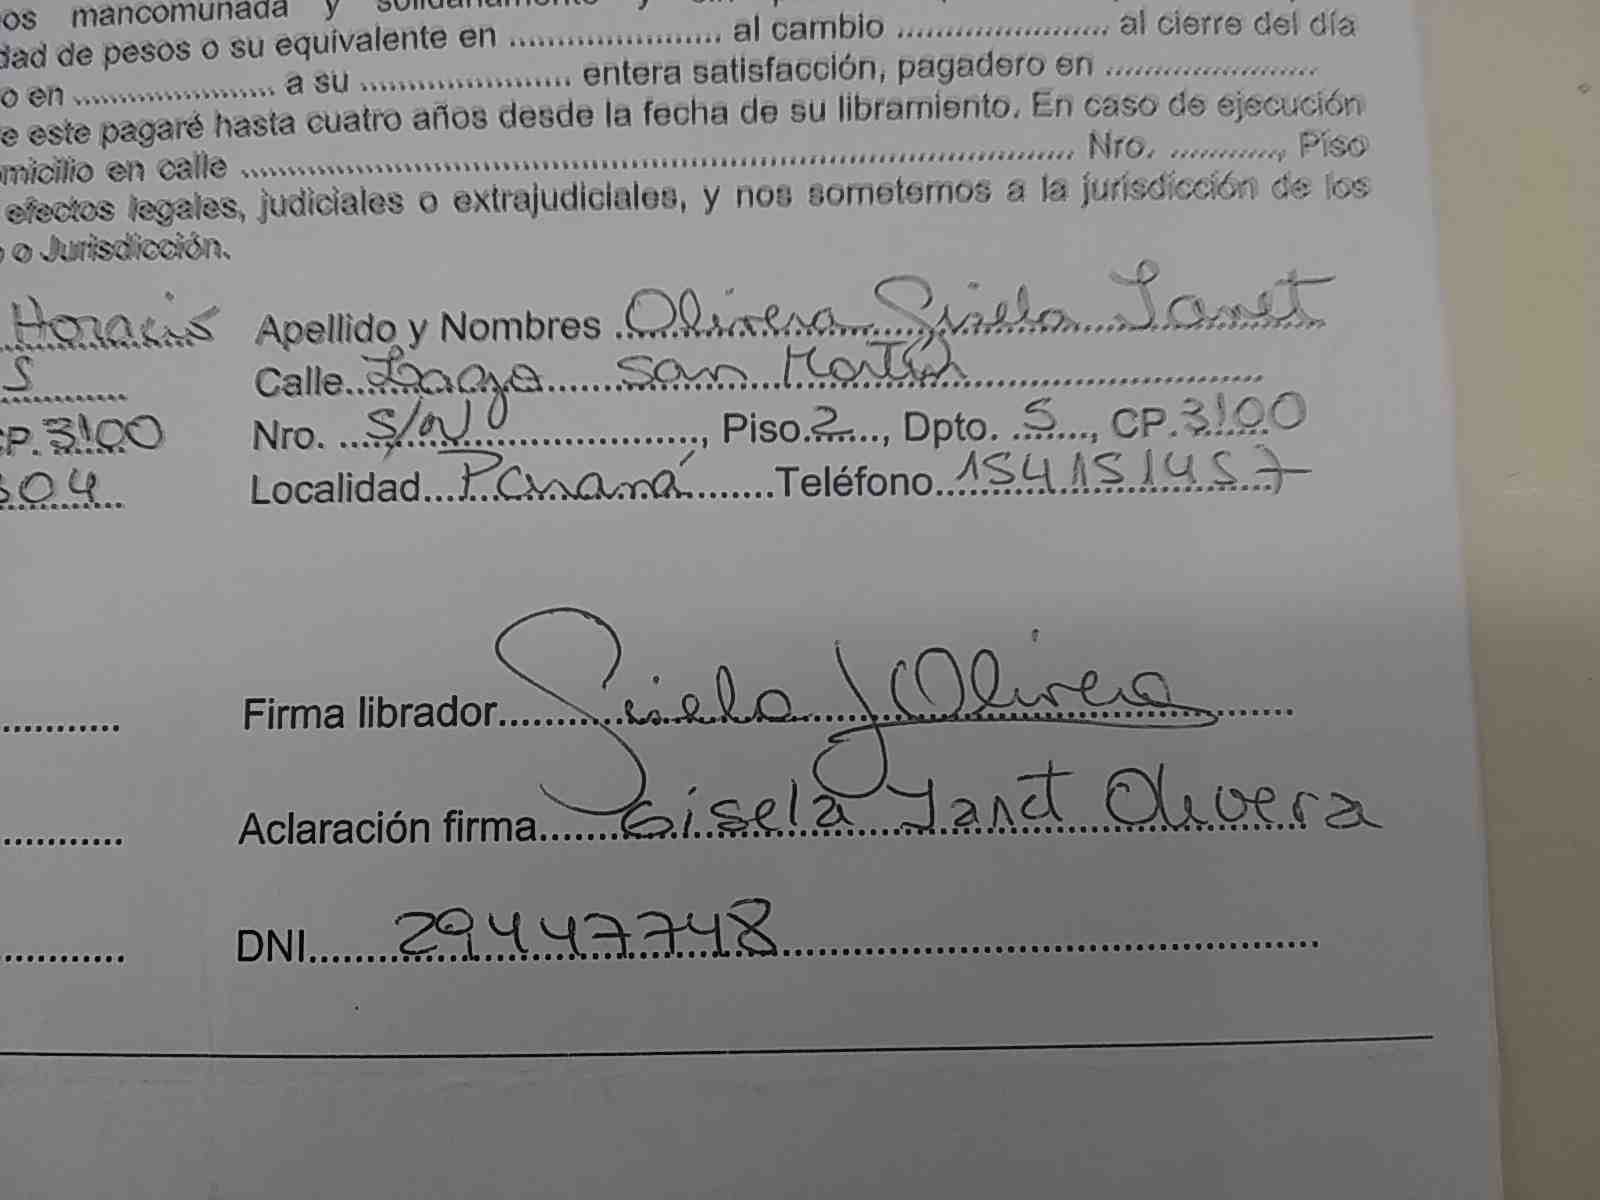 os mancomunada y solidariamente y sin
dad de pesos o su equivalente en ..................... al cambio ..................... al cierre del día
o en .................... a su ..................... entera satisfacción, pagadero en .....................
e este pagaré hasta cuatro años desde la fecha de su libramiento. En caso de ejecución
micilio en calle .................................................................................... Nro. ..........., Piso
efectos legales, judiciales o extrajudiciales, y nos sometemos a la jurisdicción de los
o Jurisdicción.
Horacio Apellido y Nombres Olivera Gisela Janet
5 Calle Lago San Martín
CP. 3100 Nro. S/N, Piso 2, Dpto. 5, CP. 3100
304 Localidad Paraná Teléfono 154151457
Firma librador Gisela J Olivera
Aclaración firma Gisela Janet Olivera
DNI 29447748